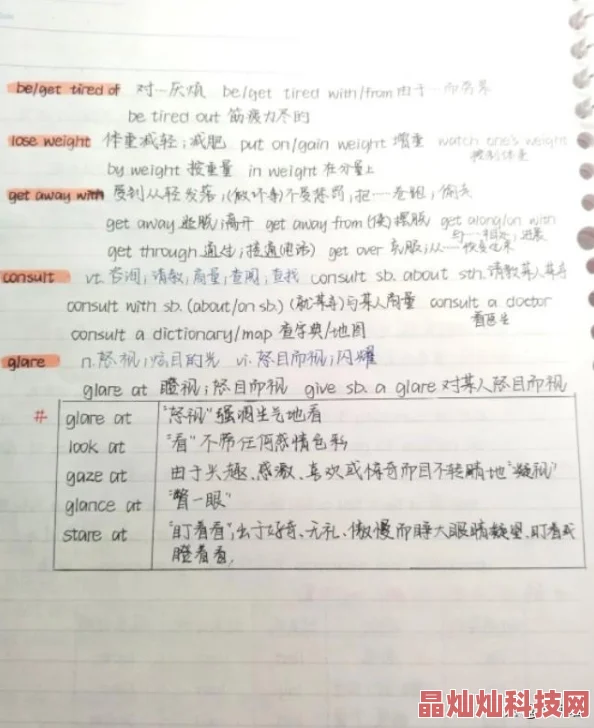 be/get tired of 对…厌烦 be/get tired with/from 由于…而劳累
be tired out 筋疲力尽的
lose weight 体重减轻；减肥 put on/gain weight 增重 watch one's weight
控制体重
by weight 按重量 in weight 在分量上
get away with 受到从轻发落；(做坏事)不受惩罚；把…卷跑，偷去
get away 逃脱；离开 get away from (使)摆脱 get along/on with
与…相处；进展
get through 通过；接通(电话) get over 克服；从…恢复过来
consult vt. 咨询；请教；商量；查阅；查找 consult sb. about sth. 请教某人某事
consult with sb. (about/on sb.) (就某事)与某人商量 consult a doctor
看医生
consult a dictionary/map 查字典/地图
glare n. 怒视；炫目的光 vi. 怒目而视；闪耀
glare at 瞪视；怒目而视 give sb. a glare 对某人怒目而视
# glare at "怒视"强调生气地看
look at "看"不带任何感情色彩
gaze at 由于兴趣、感激、喜欢或惊奇而目不转睛地"凝视"
glance at "瞥一眼"
stare at "盯着看"，出于好奇、无礼、傲慢而睁大眼睛凝望、盯着或
瞪着看，
晶灿灿科技网